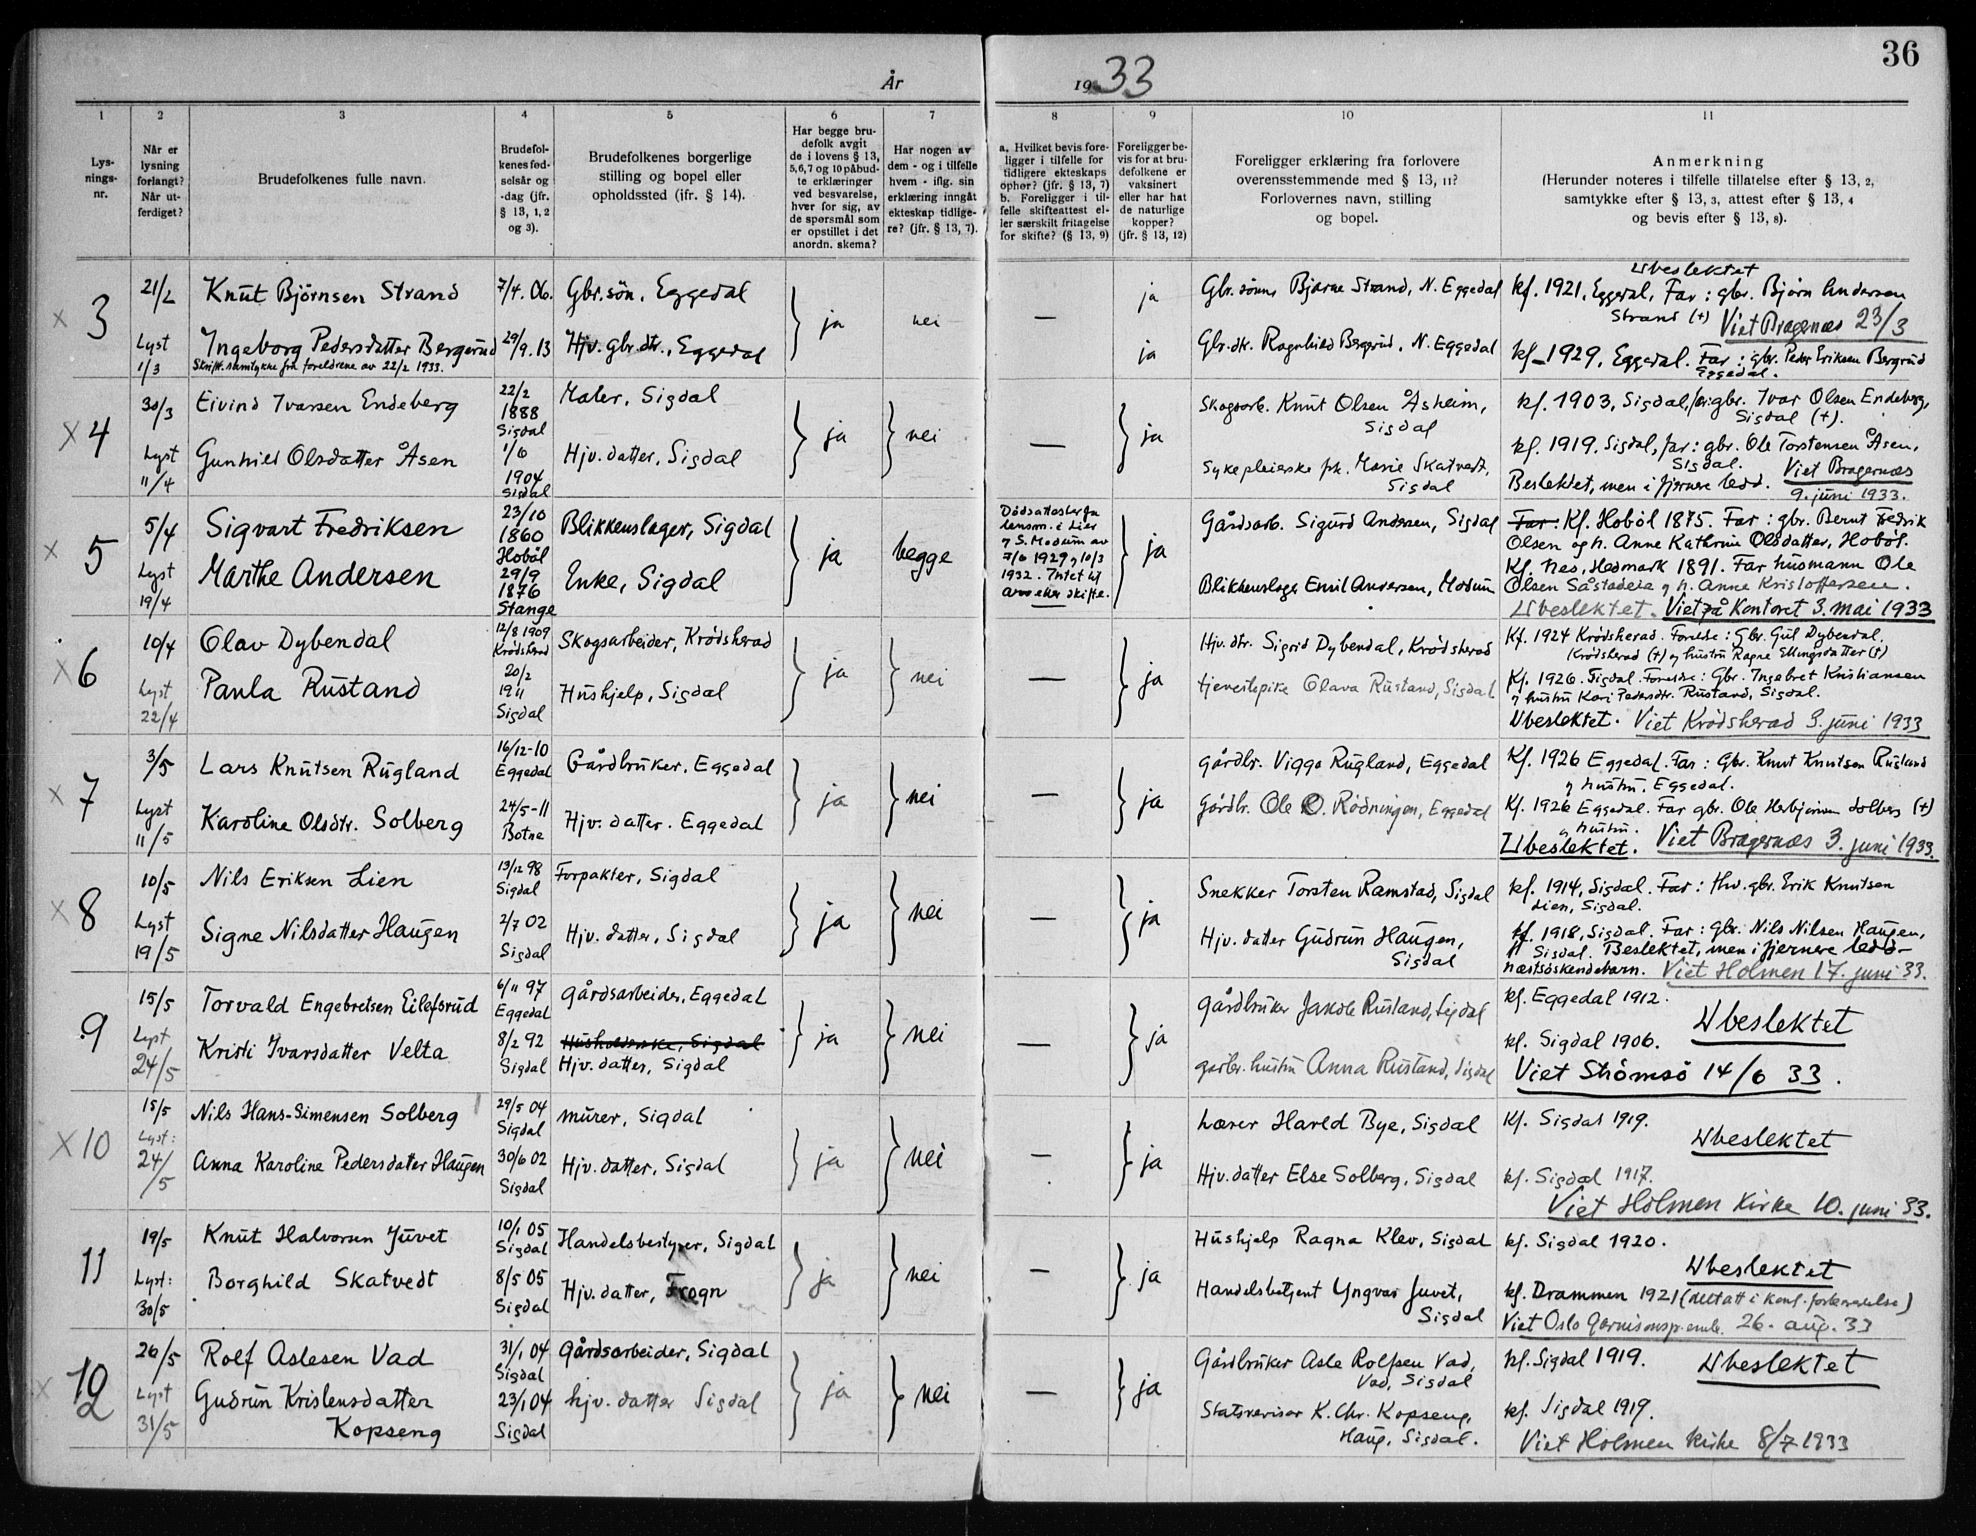 36
År
1933
1
2
3
4
5
6
7
8
9
10
11
Lys-
nings-
nr.
Når er
lysning
forlangt?
Når ut-
ferdiget?
Brudefolkenes fulle navn.
Brudefol-
kenes fød-
selsår og
-dag (jfr.
§ 13, 1, 2
og 3).
Brudefolkenes borgerlige
stilling og bopel eller
opholdssted (jfr. § 14).
Har begge bru-
defolk avgit
de i lovens § 13,
5,6,7 og 10 påbud-
te erklæringer
ved besvarelse,
hver for sig, av
de spørsmål som
er opstillet i det
anordn. skema?
Har nogen av
dem - og i tilfelle
hvem - iflg. sin
erklæring inngåt
ekteskap tidlige-
re? (jfr. § 13, 7).
a. Hvilket bevis fore-
ligger i tilfelle for
tidligere ekteskaps
ophør? (jfr. § 13, 7)
b. Foreligger i til-
felle skifteattest el-
ler særskilt fritagelse
for skifte? (§ 13, 9)
Foreligger be-
vis for at bru-
defolkene er
vaksinert
eller har hat
de naturlige
kopper?
(jfr. § 13, 12)
Foreligger erklæring fra forlovere
overensstemmende med § 13, 11?
Forlovernes navn, stilling
og bopel.
Anmerkning
(Herunder noteres i tilfelle tillatelse efter § 13, 2,
samtykke efter § 13, 3, attest efter § 13, 4
og bevis efter § 13, 8).
x 3
21/2
Lyst
1/3
Knut Björnsen Strand
Ingeborg Pedersdatter Bergerud
Skriftl. samtykke fra foreldrene av 22/2 1933.
7/4. 06.
29/9. 13
Gbr.sön, Eggedal
Hjv. gbr.dtr., Eggedal
ja
nei
—
ja
ja
Gbr. sönn Bjarne Strand, N. Eggedal
Gbr. dtr. Ragnhild Bergerud, N. Eggedal
Ubeslektet
kf. 1921, Eggedal, Far: gbr. Björn Andersen
Strand (+) Viet Bragernæs 23/3
kf. 1929, Eggedal. Far: gbr. Peder Eriksen Bergerud
Eggedal.
x 4
30/3
Lyst
11/4
Eivind Ivarsen Endeberg
Gunhild Olsdatter Åsen
22/2
1888
Sigdal
1/6
1904
Sigdal
Maler, Sigdal
Hjv. datter, Sigdal
ja
nei
—
ja
Skogsarb. Knut Olsen Åsheim,
Sigdal
Sykepleierske frk. Marie Skatvedt,
Sigdal
kf. 1903, Sigdal, far: gbr. Ivar Olsen Endeberg,
Sigdal (+).
kf. 1919, Sigdal, far: gbr. Ole Torstensen Åsen,
Sigdal. Viet Bragernæs
Beslektet, men i fjernere ledd. 9. juni 1933.
x 5
5/4
Lyst
19/4
Sigvart Fredriksen
Marthe Andersen
23/10
1860
Hoböl
29/9
1876
Stange
Blikkenslager, Sigdal
Enke, Sigdal
ja
begge
Dödsattester fra
lensm. i Lier
og S. Modum av
7/6 1929 og 10/3
1932. Intet til
arv eller skifte.
—
ja
Gårdsarb. Sigurd Andersen, Sigdal
Blikkenslager Emil Andersen, Modum
Far: Kf. Hoböl 1875. Far: gbr. Bernt Fredrik
Olsen og h. Anne Kathrine Olsdatter, Hoböl.
Kf. Nes, Hedmark 1891. Far husmann Ole
Olsen Såstadeie og h. Anne Kristoffersen.
Ubeslektet. Viet på Kontoret 3. mai 1933
x 6
10/4
Lyst
22/4
Olav Dybendal
Paula Rustand
12/8 1909
Krödsherad
20/2
1911
Sigdal
Skogsarbeider, Krödsherad
Hushjelp, Sigdal
ja
nei
—
ja
Hjv. dtr. Sigrid Dybendal, Krödsherad
tjenestepike Olava Rustand, Sigdal
Kf. 1924 Krödsherad. Foreldre: Gbr. Gul Dybendal,
Krödsherad (+) og hustru Ragne Ellingsdatter (+)
Kf. 1926. Sigdal. Foreldre: Gbr. Ingebret Kristiansen
og hustru Kari Pedersdtr. Rustand, Sigdal.
Ubeslektet. Viet Krödsherad 3. juni 1933
x 7
3/5
Lyst
11/5
Lars Knutsen Rugland
Karoline Olsdtr. Solberg
16/12-10
Eggedal
24/5-11
Botne
Gårdbruker, Eggedal
Hjv. datter. Eggedal
ja
nei
—
ja
gårdbr. Viggo Rugland, Eggedal
Gårdbr. Ole O. Rödningen, Eggedal
Kf. 1926 Eggedal. Far: Gbr. Knut Knutsen Rugland
og hustru, Eggedal.
Kf. 1926 Eggedal. Far gbr. Ole Herbjörnsen Solberg (+)
og hustru.
Ubeslektet. Viet Bragernæs 3. juni 1933.
x 8
10/5
Lyst
19/5
Nils Eriksen Lien
Signe Nilsdatter Haugen
13/12 98
Sigdal
2/7 02
Sigdal
Forpakter, Sigdal
Hjv. datter, Sigdal
ja
nei
—
ja
Snekker Torsten Ramstad, Sigdal
Hjv. datter Gudrun Haugen,
Sigdal
kf. 1914, Sigdal. Far: fhv. gbr. Erik Knutsen
Lien, Sigdal.
kf. 1918, Sigdal. Far: gbr. Nils Nilsen Haugen,
Sigdal. Beslektet, men i fjernere ledd-
næstsöskendebarn. Viet Holmen 17. juni 33.
9
15/5
Lyst
24/5
Torvald Engebretsen Eilefsrud
Kristi Ivarsdatter Velta
6/11 97
Eggedal
8/2 92
Sigdal
gårdsarbeider, Eggedal
Husholderske, Sigdal
Hjv. datter, Sigdal
ja
nei
—
ja
gårdbruker Jakob Rustand, Sigdal
gårdbr. hustru Anna Rustand, Sigdal
kf. Eggedal 1912.
Ubeslektet
kf. Sigdal 1906.
Viet Strömsö 14/6 33.
x 10
15/5
Lyst:
24/5
Nils Hans-Simensen Solberg
Anna Karoline Pedersdatter Haugen
29/5 04
Sigdal
30/6 02
Sigdal
murer, Sigdal
Hjv. datter, Sigdal
ja
nei
—
ja
Lærer Harald Bye, Sigdal
Hjv. datter Else Solberg, Sigdal
Kf. Sigdal 1919.
Ubeslektet
kf. Sigdal 1917.
Viet Holmen Kirke 10. juni 33.
11
19/5
Lyst:
30/5
Knut Halvorsen Juvet
Borghild Skatvedt
10/1 05
Sigdal
8/5 05
Sigdal
Handelsbestyrer, Sigdal
Hjv. datter, Frogn
ja
nei
—
ja
Hushjelp Ragna Klev, Sigdal
Handelsbetjent Yngvar Juvet,
Sigdal
kf. Sigdal 1920.
Ubeslektet
kf. Drammen 1921 (deltatt i konf.-forberedelse)
Viet Oslo Garnisonsp.emb. 26. aug. 33
x 12
26/5
Lyst
31/5
Rolf Aslesen Vad
Gudrun Kristensdatter
Kopseng
31/1 04
Sigdal
23/1 04
Sigdal
gårdsarbeider, Sigdal
hjv. datter Sigdal
ja
nei
—
ja
Gårdbruker Asle Rolfsen Vad,
Vad, Sigdal
Statsrevisor K. Chr. Kopseng,
Haug, Sigdal.
kf. Sigdal 1919. Ubeslektet
kf. Sigdal 1919.
Viet Holmen Kirke 8/7 1933